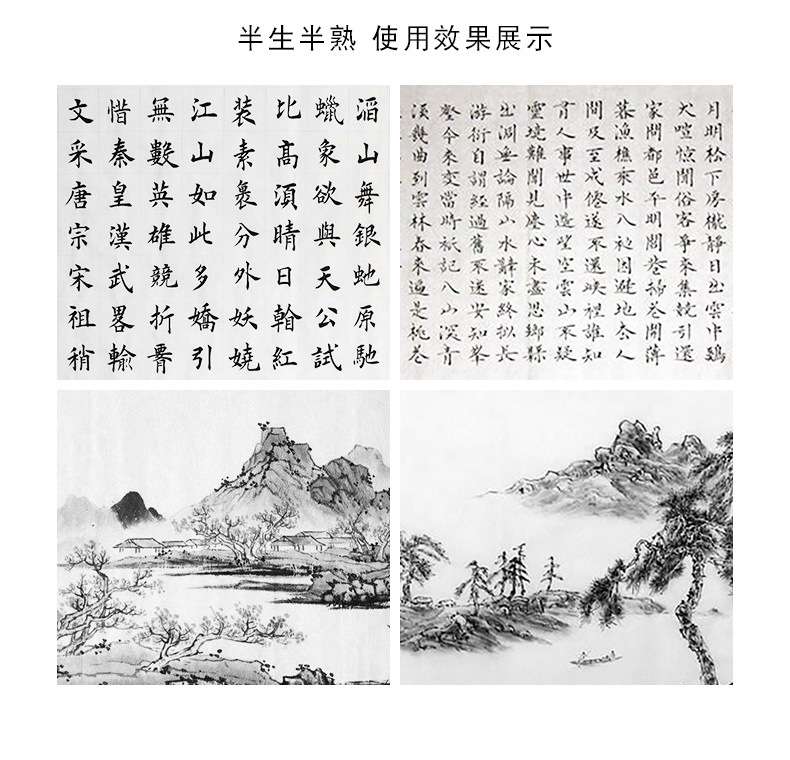 半生半熟 使用效果展示
滔山舞銀虵原馳
蠟象欲與天公試
比高湏晴日翰紅
装素裹分外妖嬈
江山如此多嬌引
無數英雄競折
惜秦皇漢武畧輸
文采唐宗宋祖稍
月明松下房櫳靜日出雲中鷄
犬喧惊聞俗客爭來集競引還
家問都邑平明閭巷掃花開薄
暮漁樵乘水入初因避地去人
間及至成僊遂不還峽裡誰知
有人事世中遙望空雲山不疑
靈境難聞見塵心未盡思鄉縣
出洞無論隔山水辭家終拟長
游衍自謂經過舊不迷安知峯
壑今來變當時秖記入山深青
溪幾曲到雲林春來遍是桃花